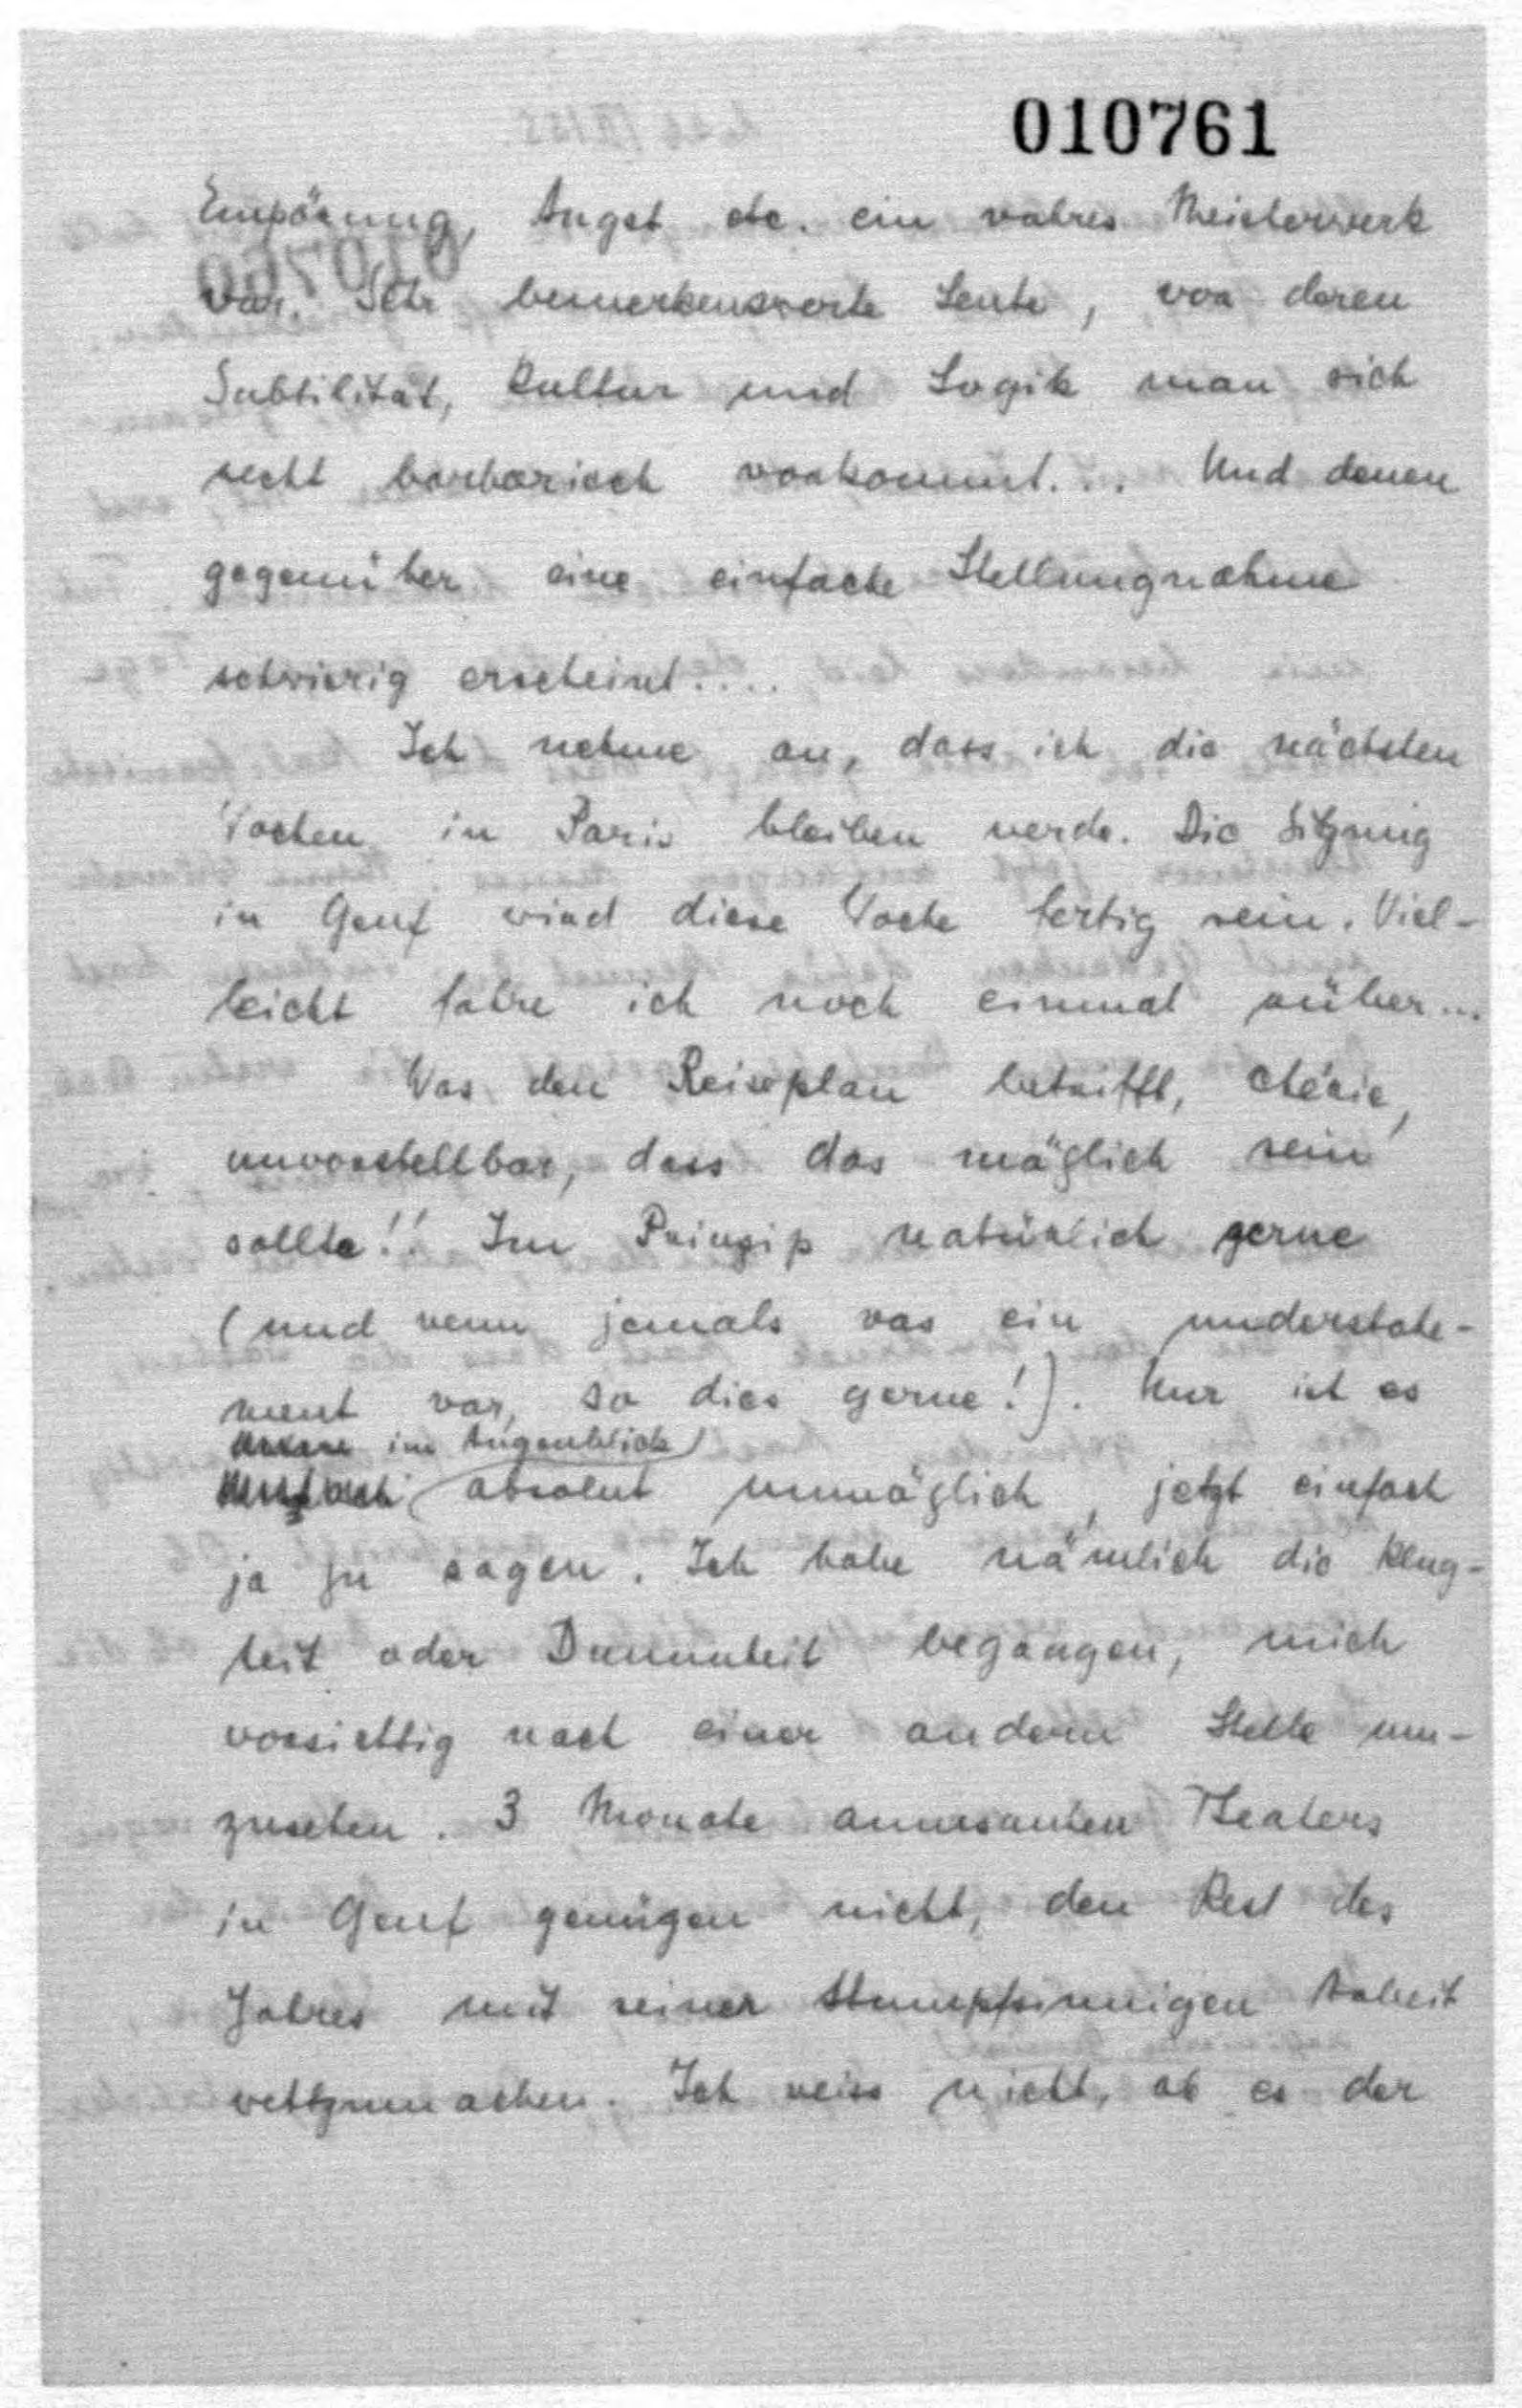 010761
Empörung, Angst etc. ein wahres Meisterwerk
war. Sehr bemerkenswerte Leute, vor deren
Subtilität, Kultur und Logik man sich
recht barbarisch vorkommt... Und denen
gegenüber eine einfache Stellungnahme
schwierig erscheint....
Ich nehme an, dass ich die nächsten
Wochen in Paris bleiben werde. Die Sitzung
in Genf wird diese Woche fertig sein. Viel-
leicht fahre ich noch einmal rüber...
Was den Reiseplan betrifft, chérie,
unvorstellbar, dass das möglich sein
sollte!! Im Prinzip natürlich gerne
(und wenn jemals was ein understate-
ment war, so dies gerne!). Nur ist es
im Augenblick
absolut unmöglich, jetzt einfach
ja zu sagen. Ich habe nämlich die Klug-
heit oder Dummheit begangen, mich
vorsichtig nach einer andern Stelle um-
zusehen. 3 Monate amusanten Theaters
in Genf genügen nicht, den Rest des
Jahres mit seiner stumpfsinnigen Arbeit
wettzumachen. Ich weiss nicht, ob es der